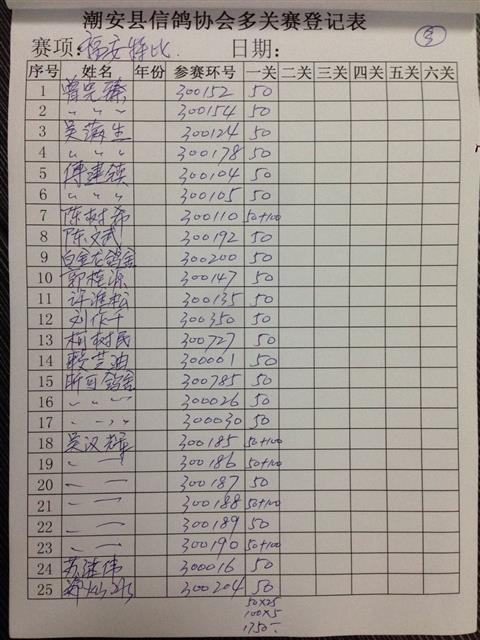 潮安县信鸽协会多关赛登记表
赛项: 福安特比 日期:
序号 姓名 年份 参赛环号 一关 二关 三关 四关 五关 六关
1 曾宪臻 300152 50
2 〃 〃 〃 300154 50
3 300124 50
4 〃 〃 〃 300178 50
5 傅建镇 300104 50
6 〃 〃 〃 300105 50
7 陈树希 300110 50+100
8 陈文武 300192 50
9 白金龙鸽舍 300200 50
10 郭桂源 300147 50
11 许淮松 300135 50
12 刘作千 300350 50
13 柯树民 300727 50
14 赖芝迪 300001 50
15 300785 50
16 〃 〃 〃 300026 50
17 〃 〃 〃 300030 50
18 吴汉辉 300185 50+100
19 〃 — 300186 50+100
20 〃 — 300187 50
21 〃 — 300188 50+100
22 〃 — 300189 50
23 〃 — 300190 50+100
24 苏继伟 300016 50
25 300204 50
50×25
100×5
1750-